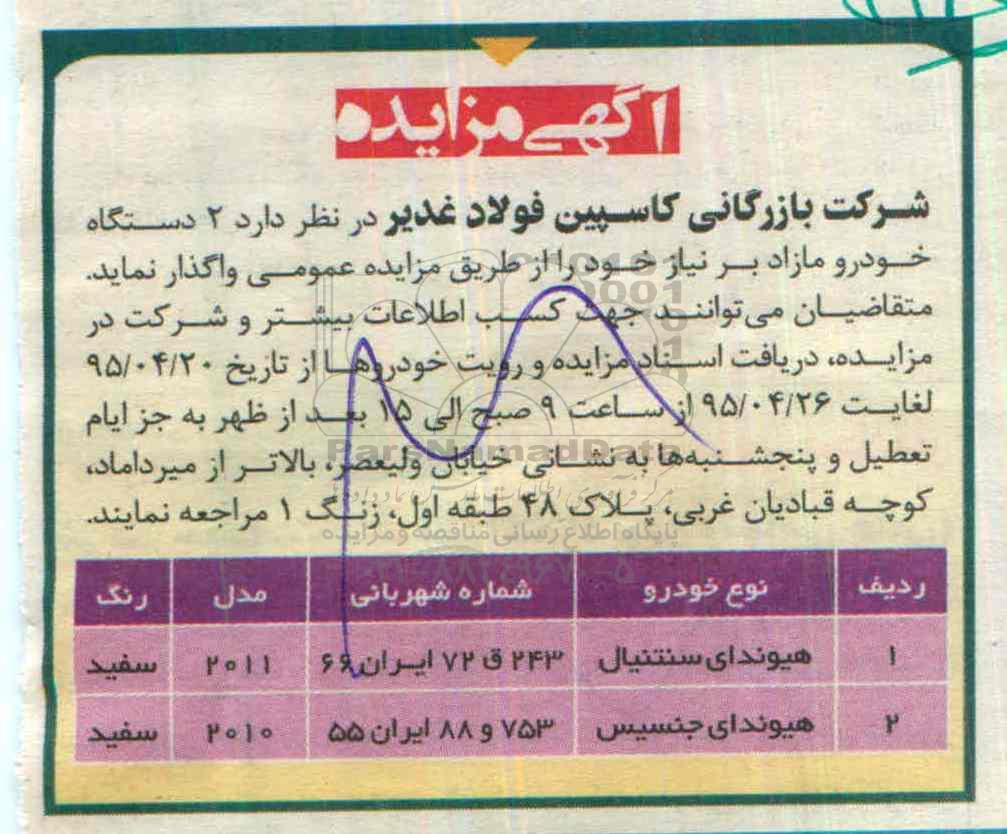 آگهی مزایده
شرکت بازرگانی کاسپین فولاد غدیر در نظر دارد ۲ دستگاه
خودرو مازاد بر نیاز خود را از طریق مزایده عمومی واگذار نماید.
متقاضیان می‌توانند جهت کسب اطلاعات بیشتر و شرکت در
مزایده، دریافت اسناد مزایده و رویت خودروها از تاریخ ۹۵/۰۴/۲۰
لغایت ۹۵/۰۴/۲۶ از ساعت ۹ صبح الی ۱۵ بعد از ظهر به جز ایام
تعطیل و پنجشنبه‌ها به نشانی خیابان ولیعصر، بالاتر از میرداماد،
کوچه قبادیان غربی، پلاک ۴۸ طبقه اول، زنگ ۱ مراجعه نمایند.
ParsNamadData
پایگاه اطلاع رسانی مناقصه و مزایده
ردیف نوع خودرو شماره شهربانی مدل رنگ
۱ هیوندای سنتنیال ۲۴۳ ق ۷۲ ایران ۶۶ ۲۰۱۱ سفید
۲ هیوندای جنسیس ۷۵۳ و ۸۸ ایران ۵۵ ۲۰۱۰ سفید